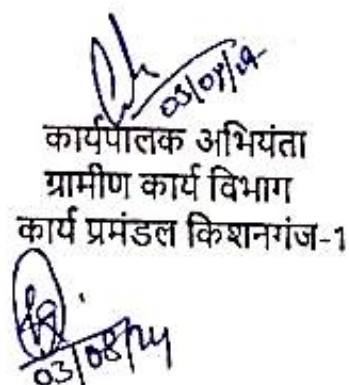 03/08/24
कार्यपालक अभियंता
ग्रामीण कार्य विभाग
कार्य प्रमंडल किशनगंज-1
03/08/24